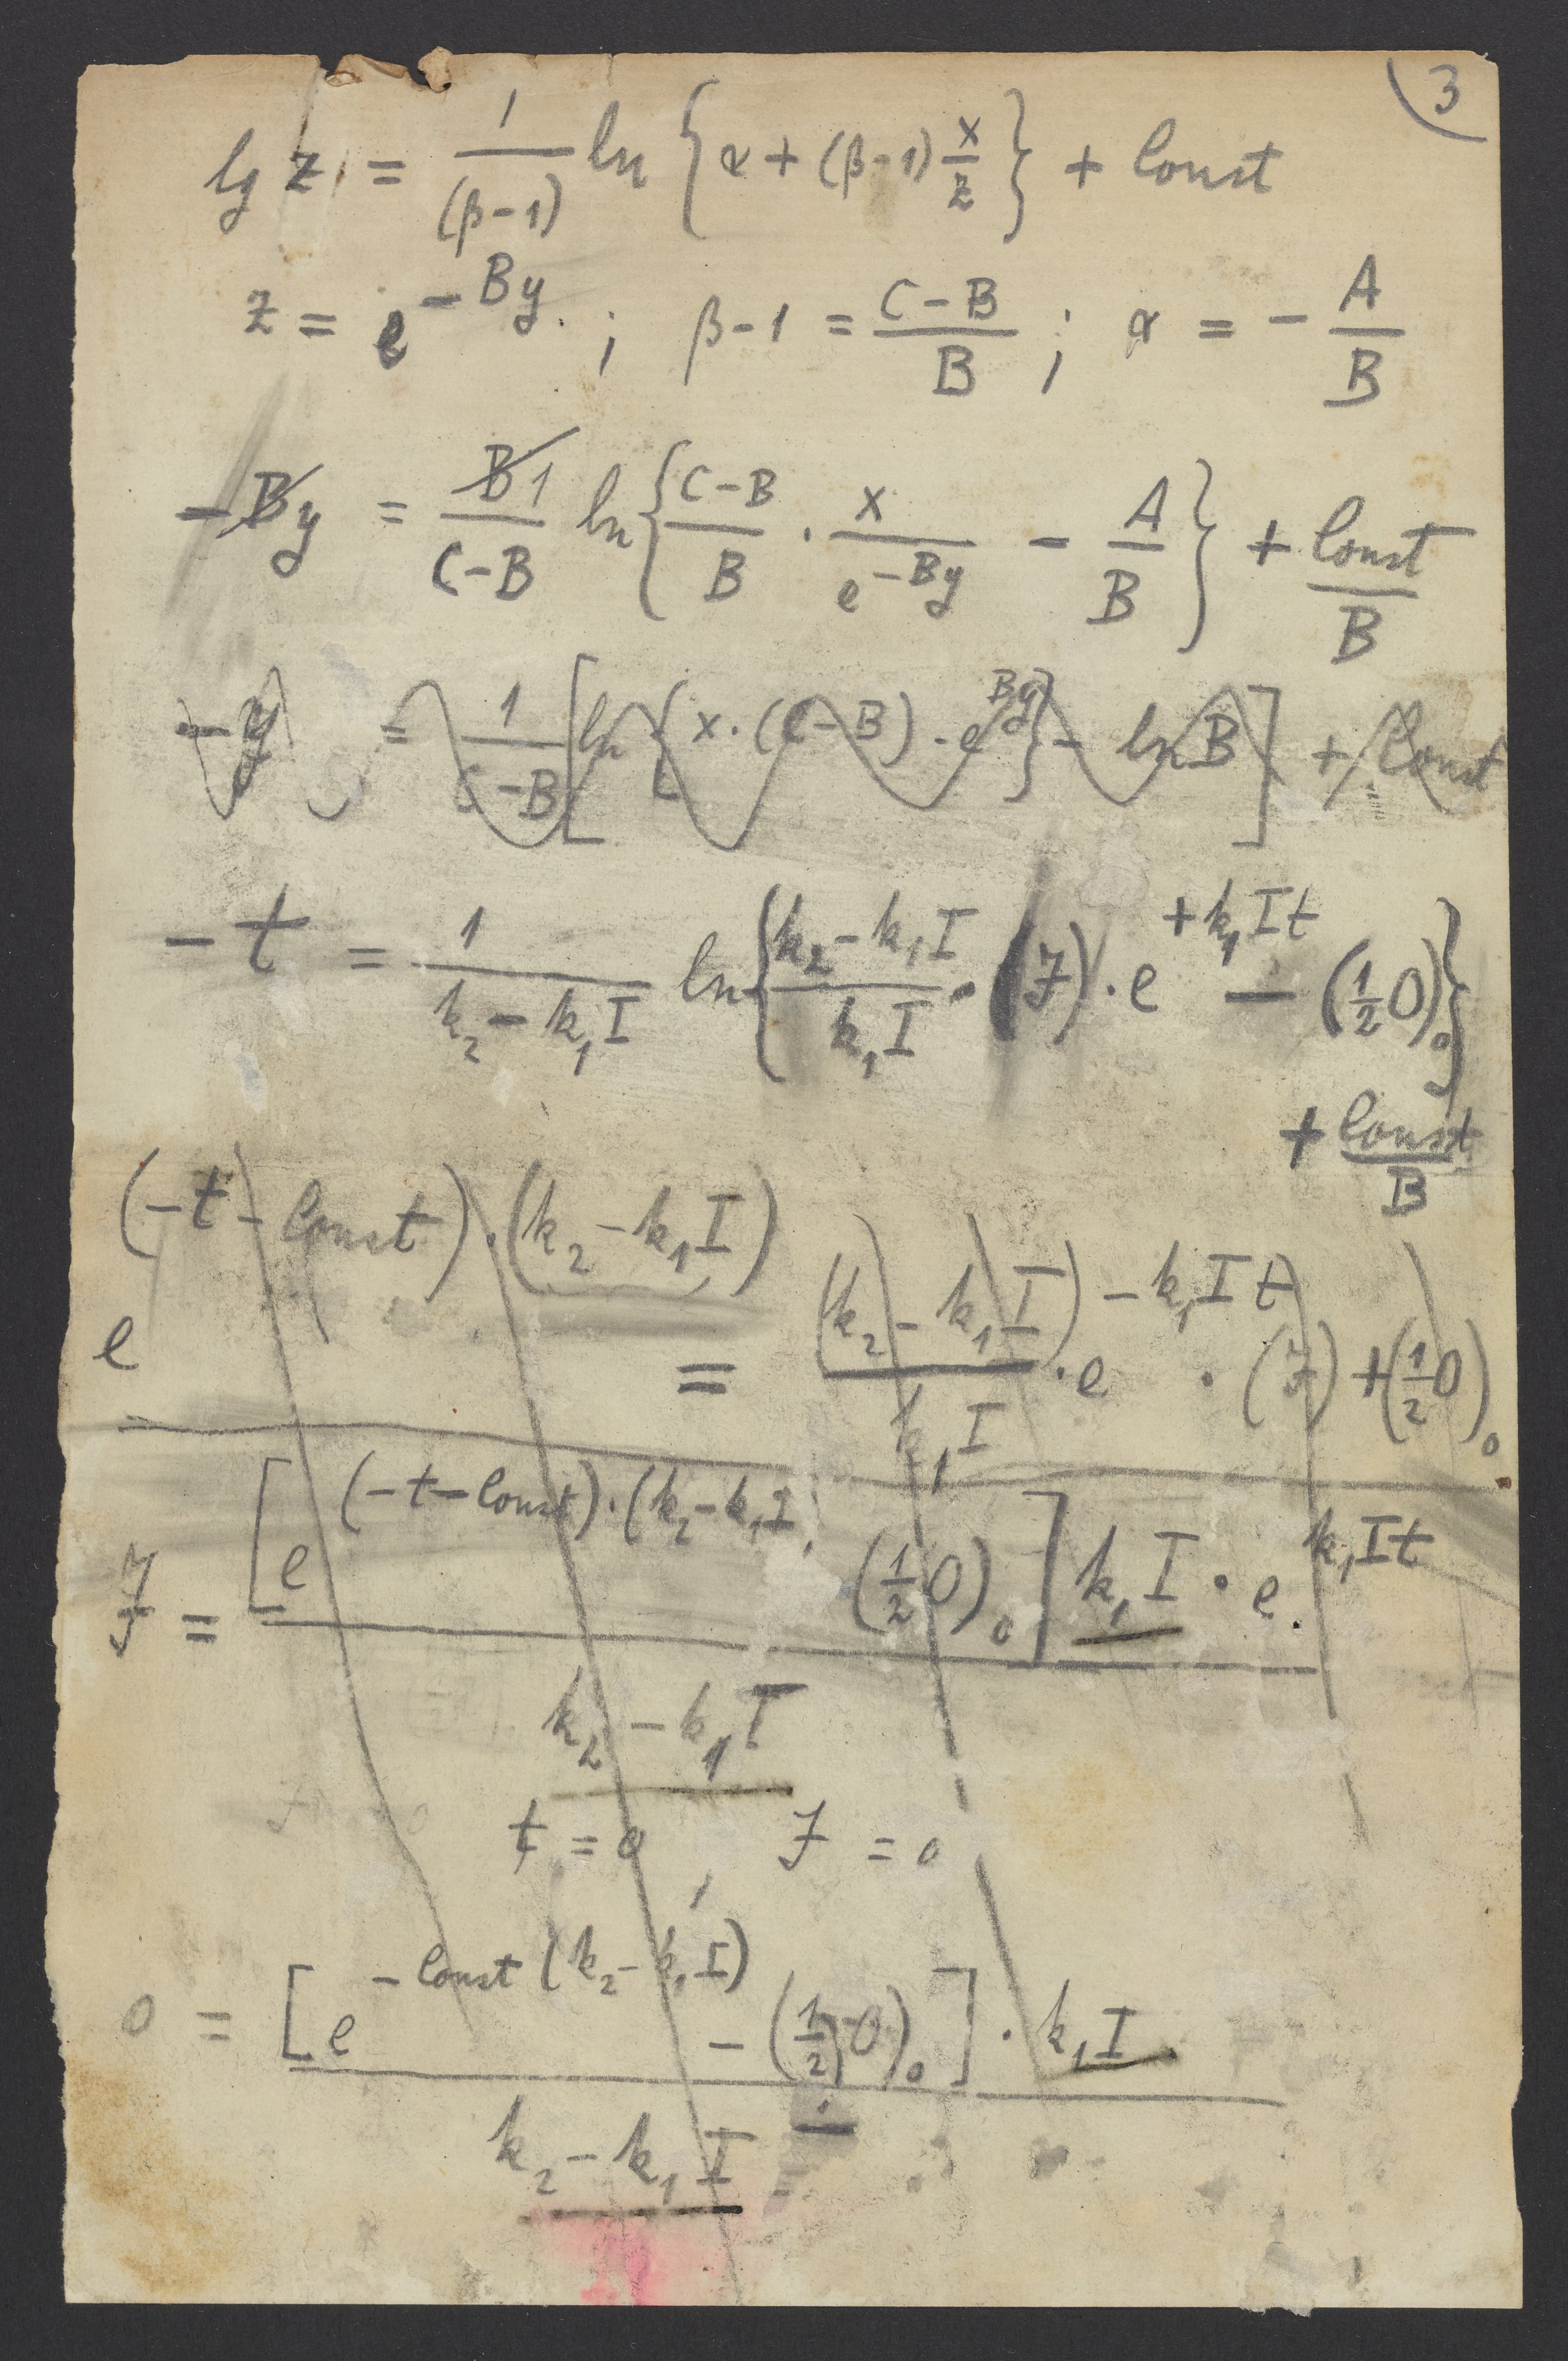 3
lg z = 1/(β-1) ln {α + (β-1) x/z} + Const
z = e^{-By} ; β-1 = (C-B)/B ; α = - A/B
-By = B1/(C-B) ln {(C-B)/B · x/e^{-By} - A/B} + Const/B
-y = 1/(C-B) [ln {x·(C-B)·e^{By}} - ln B] + Const
-t = 1/(k₂-k₁I) ln {(k₂-k₁I)/(k₁I) · (J)·e^{+k₁It} - (½O)₀}
+ Const/B
e^{(-t-Const)·(k₂-k₁I)} = (k₂-k₁I)/(k₁I) · e^{-k₁It} · (J) + (½O)₀
J = [e^{(-t-Const)·(k₂-k₁I} (½O)₀] k₁I · e^{k₁It}
k₂-k₁I
t = 0, J = 0
0 = [e^{-Const(k₂-k₁I)} - (½O)₀] · k₁I
k₂-k₁I